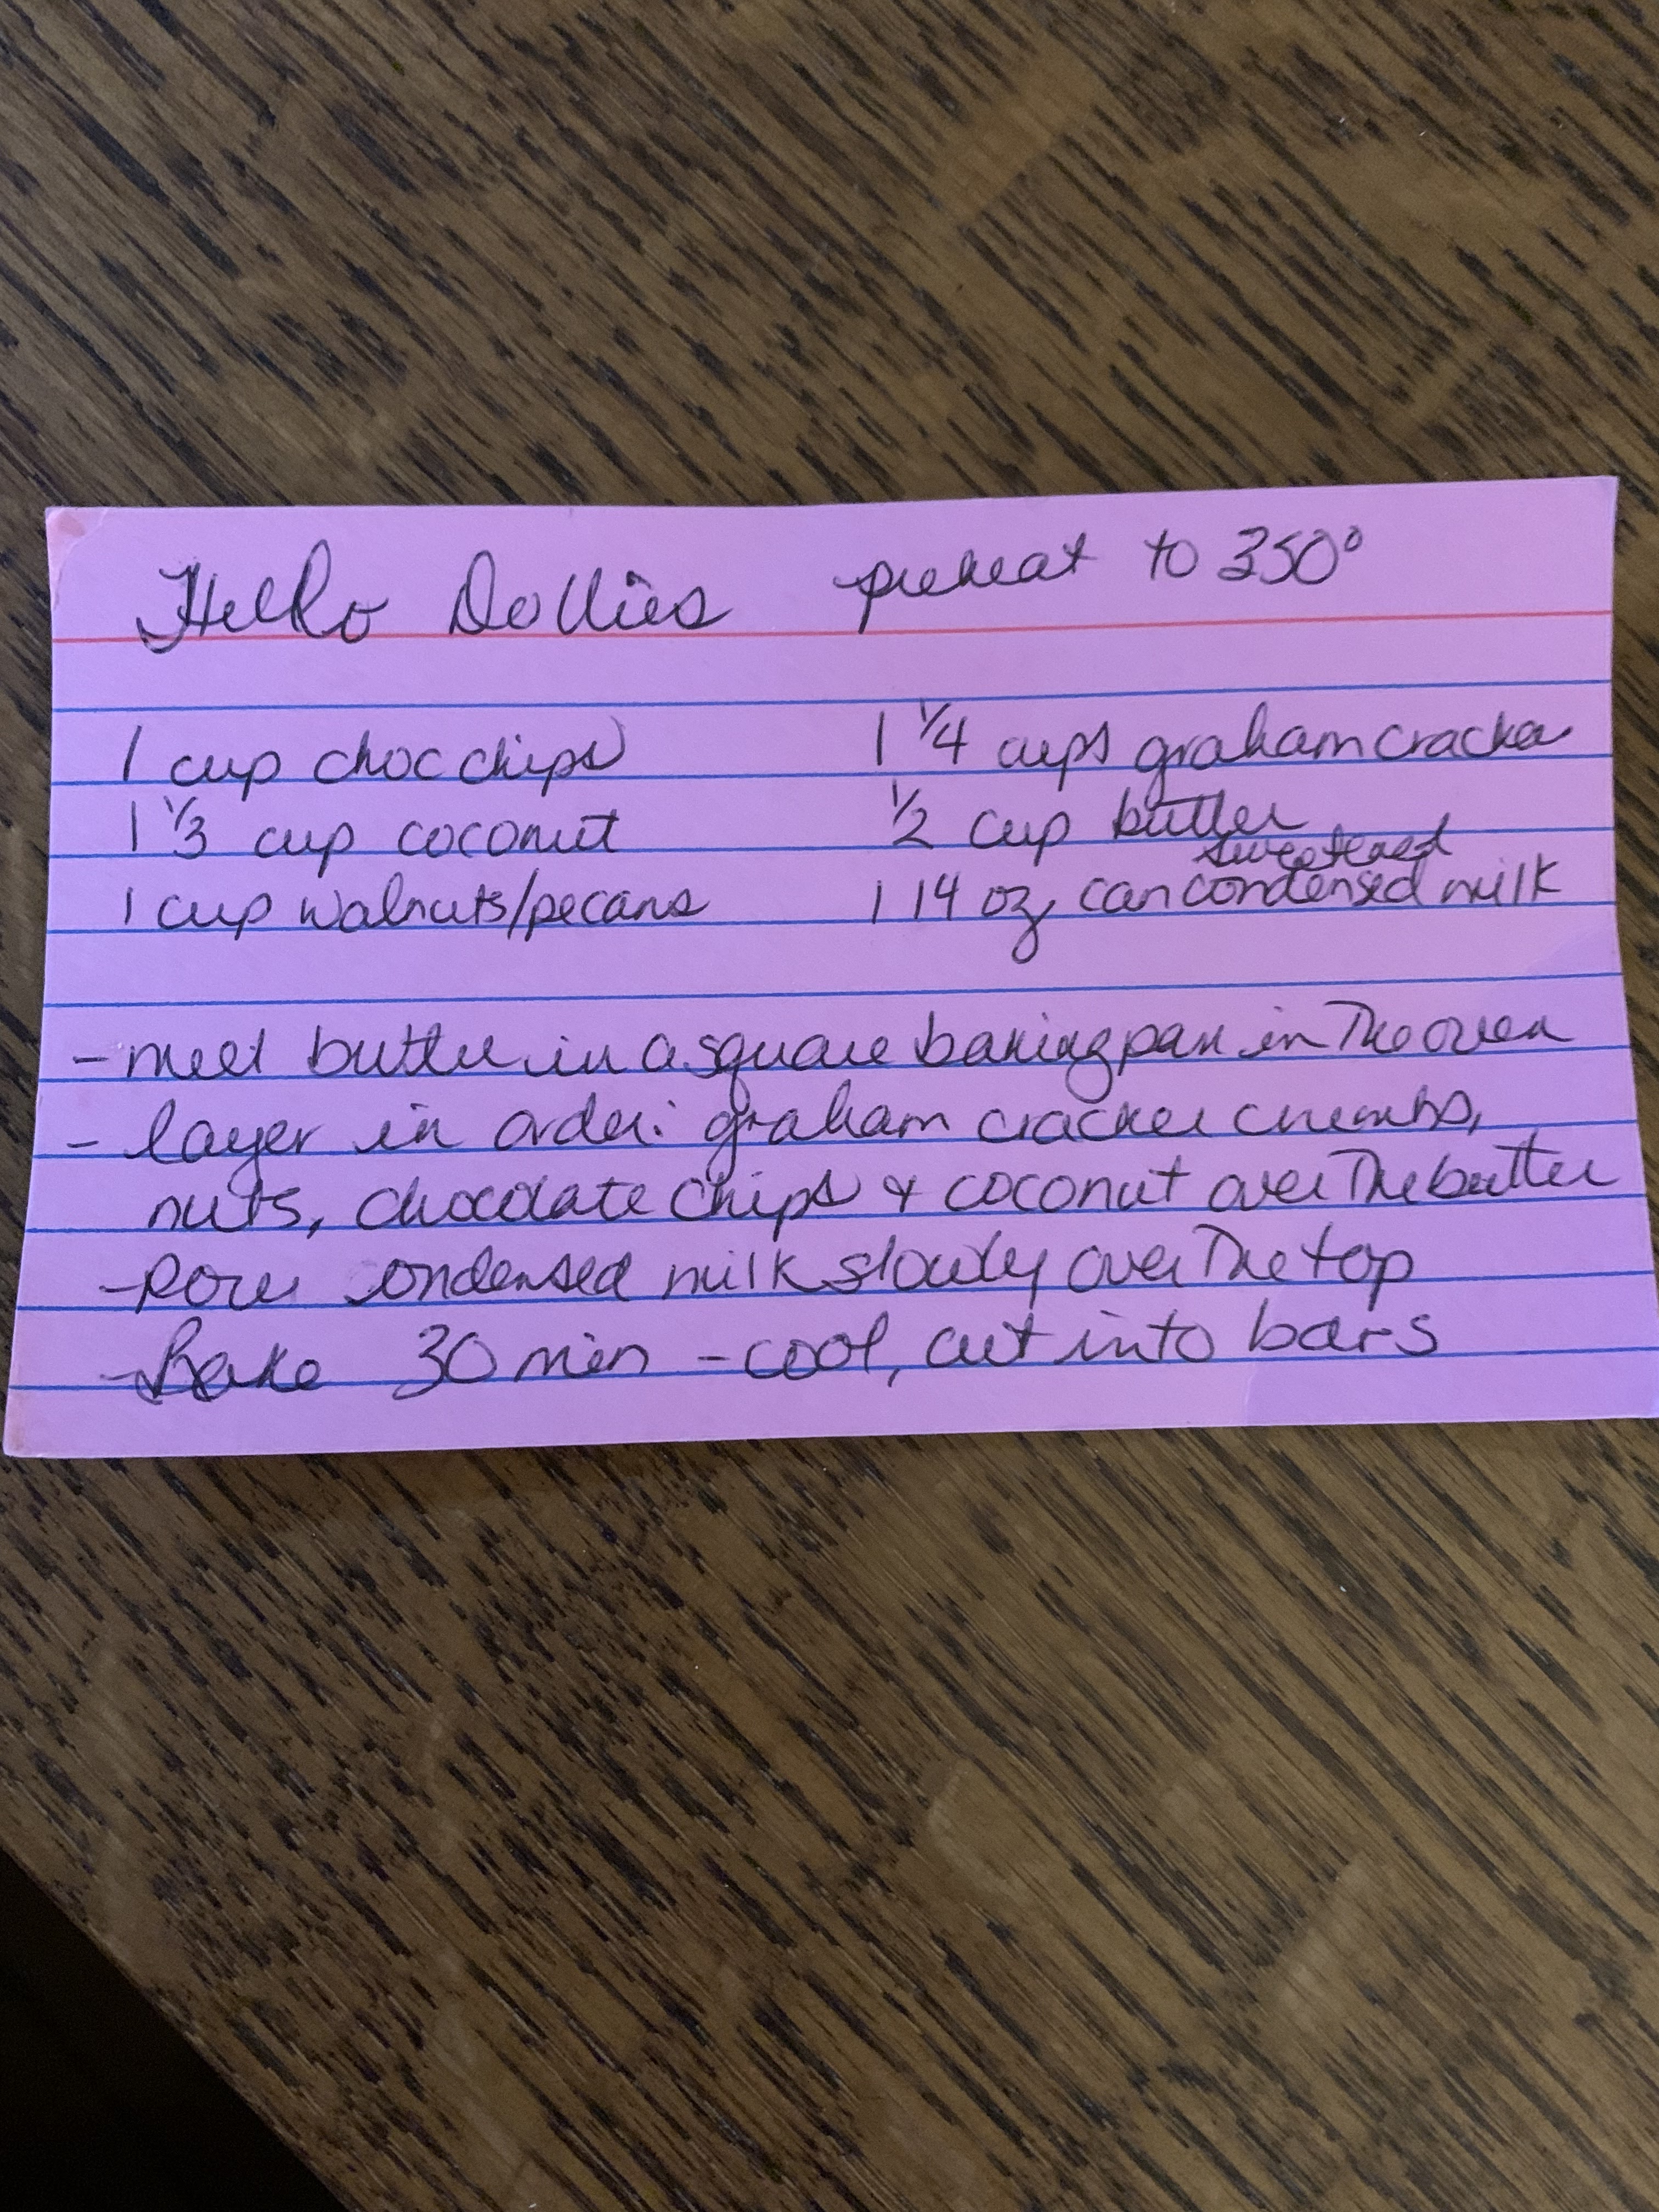 Hello Dollies preheat to 350°
1 cup choc chips 1 1/4 cups graham cracker
1 1/3 cup coconut 1/2 cup butter
sweetened
1 cup walnuts/pecans 1 14 oz can condensed milk
- melt butter in a square baking pan in the oven
- layer in order: graham cracker crumbs,
nuts, chocolate chips & coconut over the butter
- Pour condensed milk slowly over the top
- Bake 30 min - cool, cut into bars